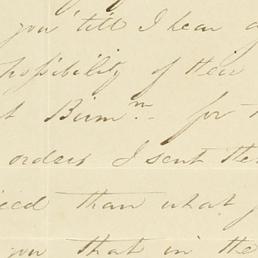 you till I hear
possibility of their
Birm<sup>m</sup>. for
orders I sent the
than what
you that in the